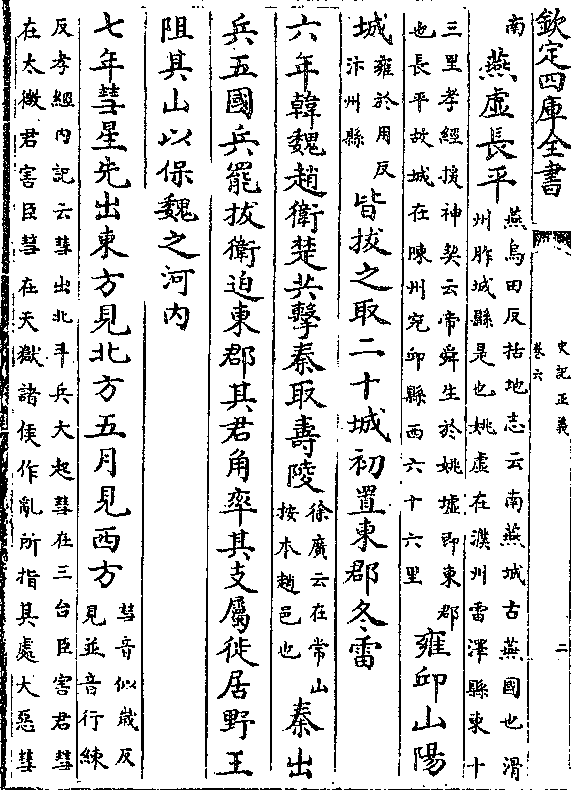 欽定四庫全書
史記正義
卷六
二
南
燕虚長平
燕烏田反括地志云南燕城古燕國也滑
州胙城縣是也姚虚在濮州雷澤縣東十
三里孝經援神契云帝舜生於姚墟即東郡
也長平故城在陳州宛邱縣西六十六里
雍邱山陽
城
雍於用反
汴州縣
皆拔之取二十城初置東郡冬雷
六年韓魏趙衛楚共擊秦取壽陵
徐廣云在常山
按本趙邑也
秦出
兵五國兵罷拔衛迫東郡其君角率其支屬徙居野王
阻其山以保魏之河内
七年彗星先出東方見北方五月見西方
彗音似歲反
見並音行練
反孝經内記云彗出北斗兵大起彗在三台臣害君彗
在太微君害臣彗在天獄諸侯作亂所指其處大惡彗